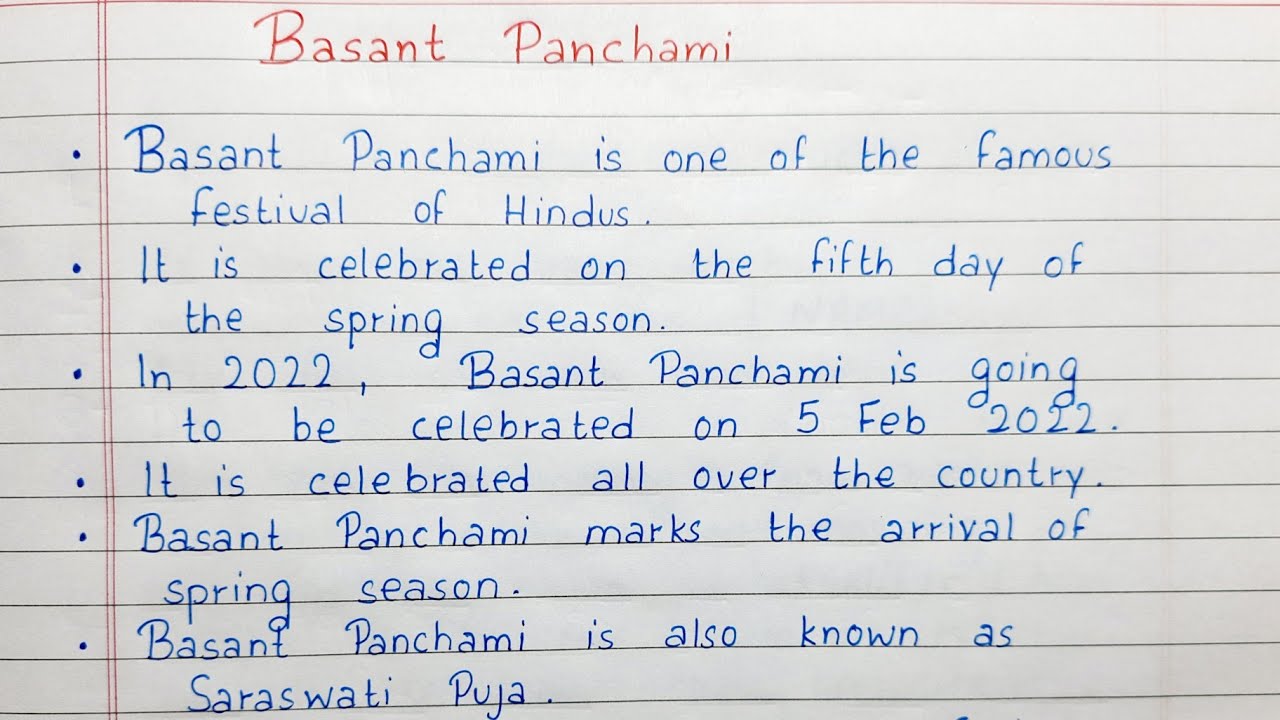 Basant Panchami
• Basant Panchami is one of the famous
festival of Hindus.
• It is celebrated on the fifth day of
the spring season.
• In 2022, Basant Panchami is going
to be celebrated on 5 Feb 2022.
• It is celebrated all over the country.
• Basant Panchami marks the arrival of
spring season.
• Basant Panchami is also known as
Saraswati Puja.